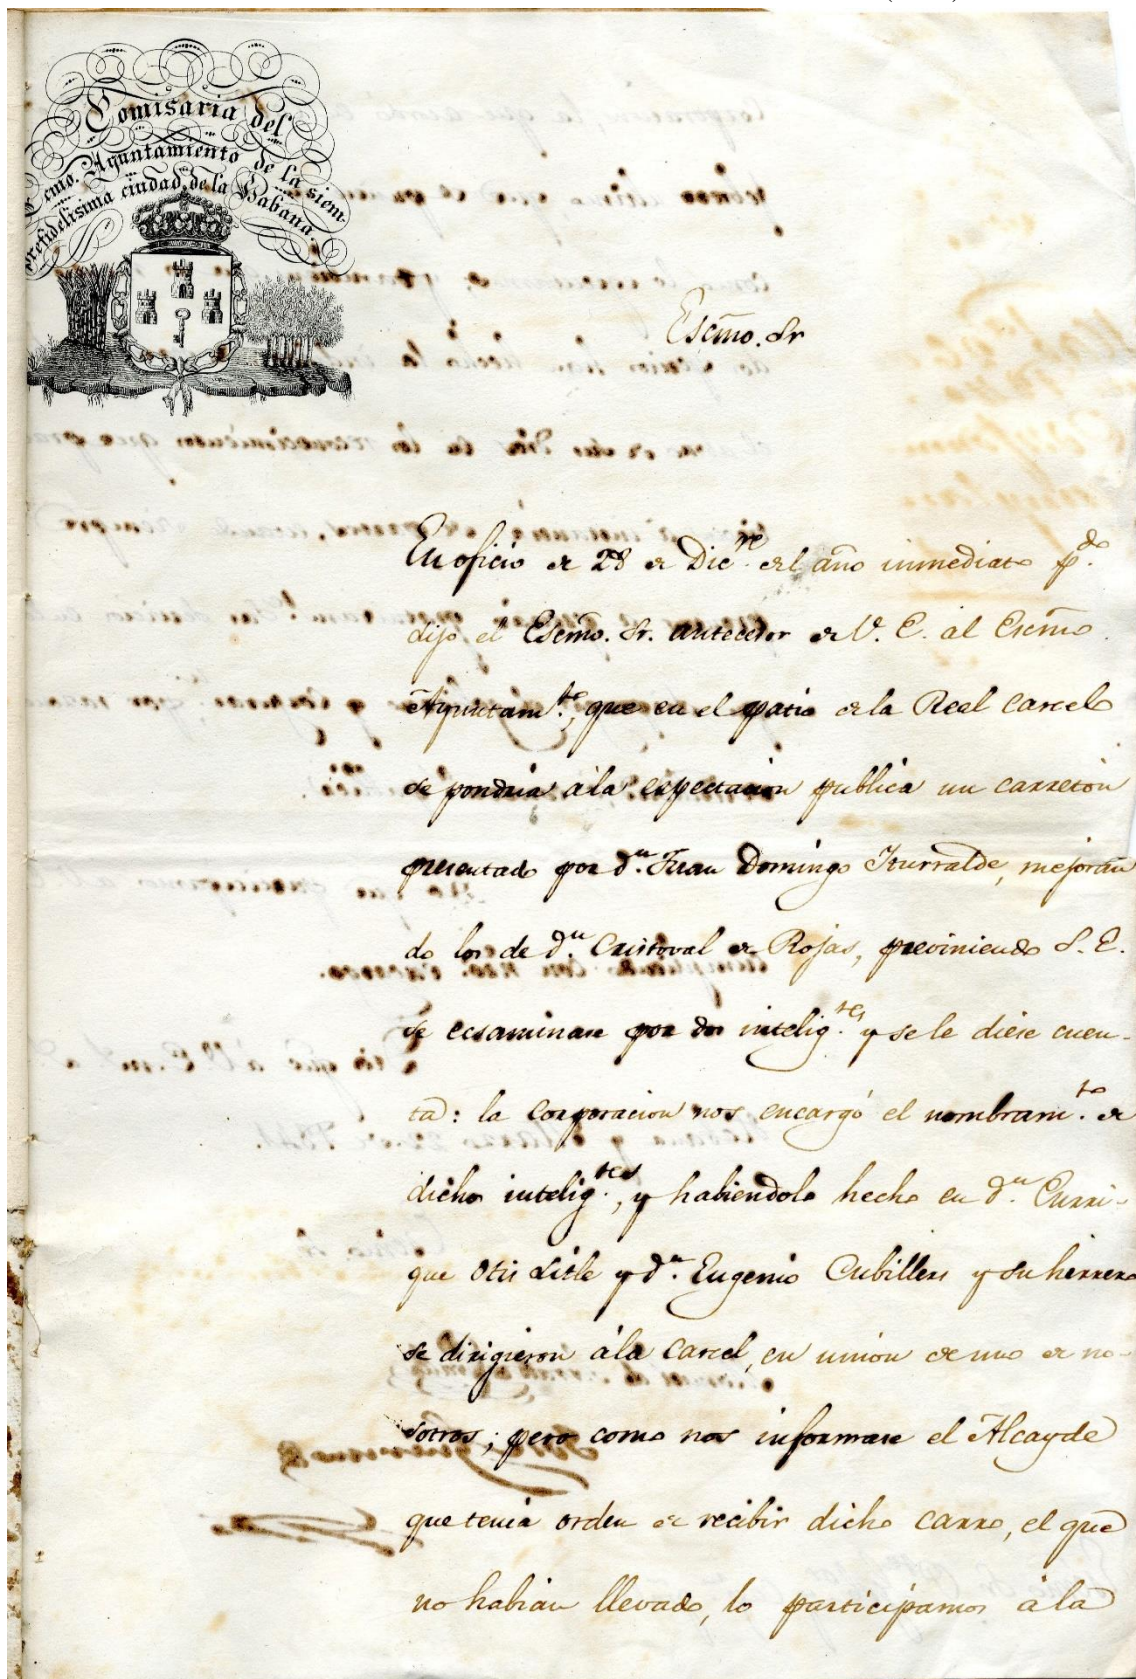 Comisaria del
Ecmo. Ayuntamiento de la siem-
prefidelisima ciudad de la Habana.
Escmo. Sr
En oficio de 28 de Dic.re del año inmediato p.do
dijo el Escmo. Sr. antecesor de V. E. al Escmo
Ayuntam.to, que en el patio de la Real carcel
se pondria á la espectacion publica un carreton
presentado por d.n Juan Domingo Iturralde, mejoran
do los de d.n Cristoval de Rojas, previniendo S. E.
se ecsaminase por dos intelig.tes y se le diese cuen-
ta: la corporacion nos encargó el nombram.to de
dichos intelig.tes, y habiendolo hecho en d.n Enrri-
que Otis Litle y d.n Eugenio Cubillers y su herrero
se dirigieron á la carcel en union de uno de no-
sotros; pero como nos informase el Alcayde
que tenia orden de recibir dicho carro, el que
no habian llevado, lo participamos á la